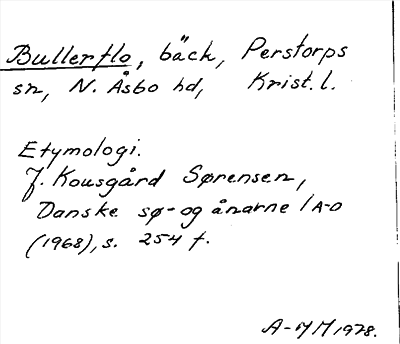 Bullerflo, bäck, Perstorps
sn, N. Åsbo hd, Krist. l.
Etymologi.
J. Kousgård Sørensen,
Danske sø- og ånavne 1 A-D
(1968), s. 254 f.
A-MM 1978.